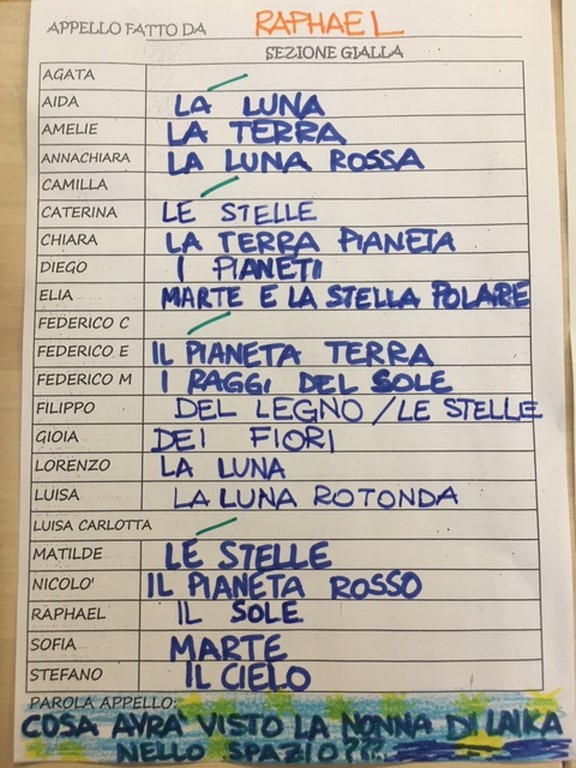 APPELLO FATTO DA RAPHAEL
SEZIONE GIALLA
AGATA
AIDA LA LUNA
AMELIE LA TERRA
ANNACHIARA LA LUNA ROSSA
CAMILLA
CATERINA LE STELLE
CHIARA LA TERRA PIANETA
DIEGO I PIANETI
ELIA MARTE E LA STELLA POLARE
FEDERICO C
FEDERICO E IL PIANETA TERRA
FEDERICO M I RAGGI DEL SOLE
FILIPPO DEL LEGNO / LE STELLE
GIOIA DEI FIORI
LORENZO LA LUNA
LUISA LA LUNA ROTONDA
LUISA CARLOTTA
MATILDE LE STELLE
NICOLO' IL PIANETA ROSSO
RAPHAEL IL SOLE
SOFIA MARTE
STEFANO IL CIELO
PAROLA APPELLO:
COSA AVRA' VISTO LA NONNA DI LAIKA
NELLO SPAZIO???